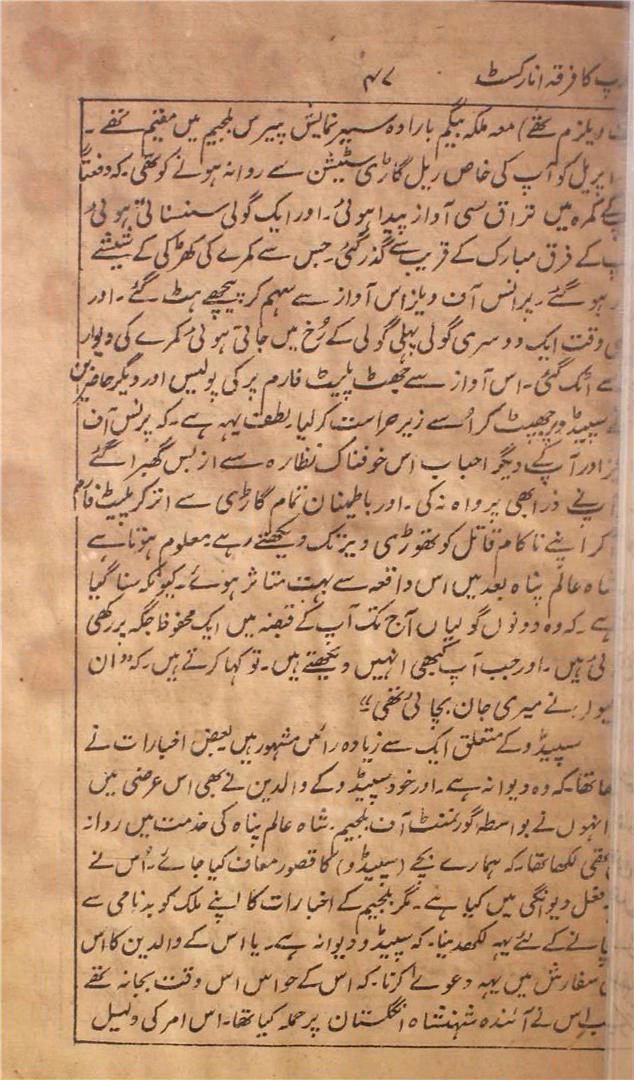 پ کا فرقہ انارکسٹ ۴۷
ویلزم تھے) معہ ملکہ بیگم بارادہ سیر نمایش پیرس بلجیم میں مقیم تھے۔
اپریل کو آپ کی خاص ریل گاڑی سٹیشن سے روانہ ہونے کو تھی۔ کہ دفعتاً
کے کمرہ میں تڑاق سی آواز پیدا ہوئی۔ اور ایک گولی سنسناتی ہوئی
پ کے فرق مبارک کے قریب سے گذر گئی۔ جس سے کمرے کی کھڑکی کے شیشے
ر ہو گئے۔ پرنس آف ویلز اس آواز سے سہم کر پیچھے ہٹ گئے۔ اور
ی وقت ایک دوسری گولی پہلی گولی کے رُخ میں جاتی ہوئی کمرے کی دیوار
سے اٹک گئی۔ اس آواز سے جھٹ پلیٹ فارم پر کی پولیس اور دیگر حاضرین
نے سپیڈو پر جھپٹ کر اُسے زیر حراست کر لیا۔ لطف یہہ ہے۔ کہ پرنس آف
ز اور آپکے دیگر احباب اس خوفناک نظارہ سے ازبس گھبرا گئے
نے ذرا بھی پرواہ نہ کی۔ اور باطمینان تمام گاڑی سے اتر کر پلیٹ فارم
کر اپنے ناکام قاتل کو تھوڑی دیر تک دیکھتے رہے۔ معلوم ہوتا ہے
شاہ عالم پناہ بعد میں اس واقعہ سے بہت متاثر ہوئے۔ کیونکہ سنا گیا
ہے۔ کہ وہ دونوں گولیاں آج تک آپ کے قبضہ میں ایک محفوظ جگہ پر رکھی
ئی ہیں۔ اور جب آپ کبھی انہیں دیکھتے ہیں۔ تو کہا کرتے ہیں۔ کہ "ان
نے میری جان بچائی تھی"
سپیڈو کے متعلق ایک سے زیادہ رائیں مشہور ہیں بعض اخبارات نے
تھا۔ کہ وہ دیوانہ ہے۔ اور خود سپیڈو کے والدین نے بھی اس عرضی میں
انہوں نے بواسطہ گورنمنٹ آف بلجیم۔ شاہ عالم پناہ کی خدمت میں روانہ
تھی لکھا تھا۔ کہ ہمارے بچے (سپیڈو) کا قصور معاف کیا جائے۔ اُس نے
فعل دیوانگی میں کیا ہے۔ مگر بلجیم کے اخبارات کا اپنے ملک کو بدنامی سے
نے کے لئے یہہ لکھدینا۔ کہ سپیڈو دیوانہ ہے۔ یا اس کے والدین کا اس
سفارش میں یہہ دعوےٰ کرنا۔ کہ اس کے حواس اس وقت بجا نہ تھے
اس نے آئندہ شہنشاہ انگلستان پر حملہ کیا تھا۔ اس امر کی دلیل